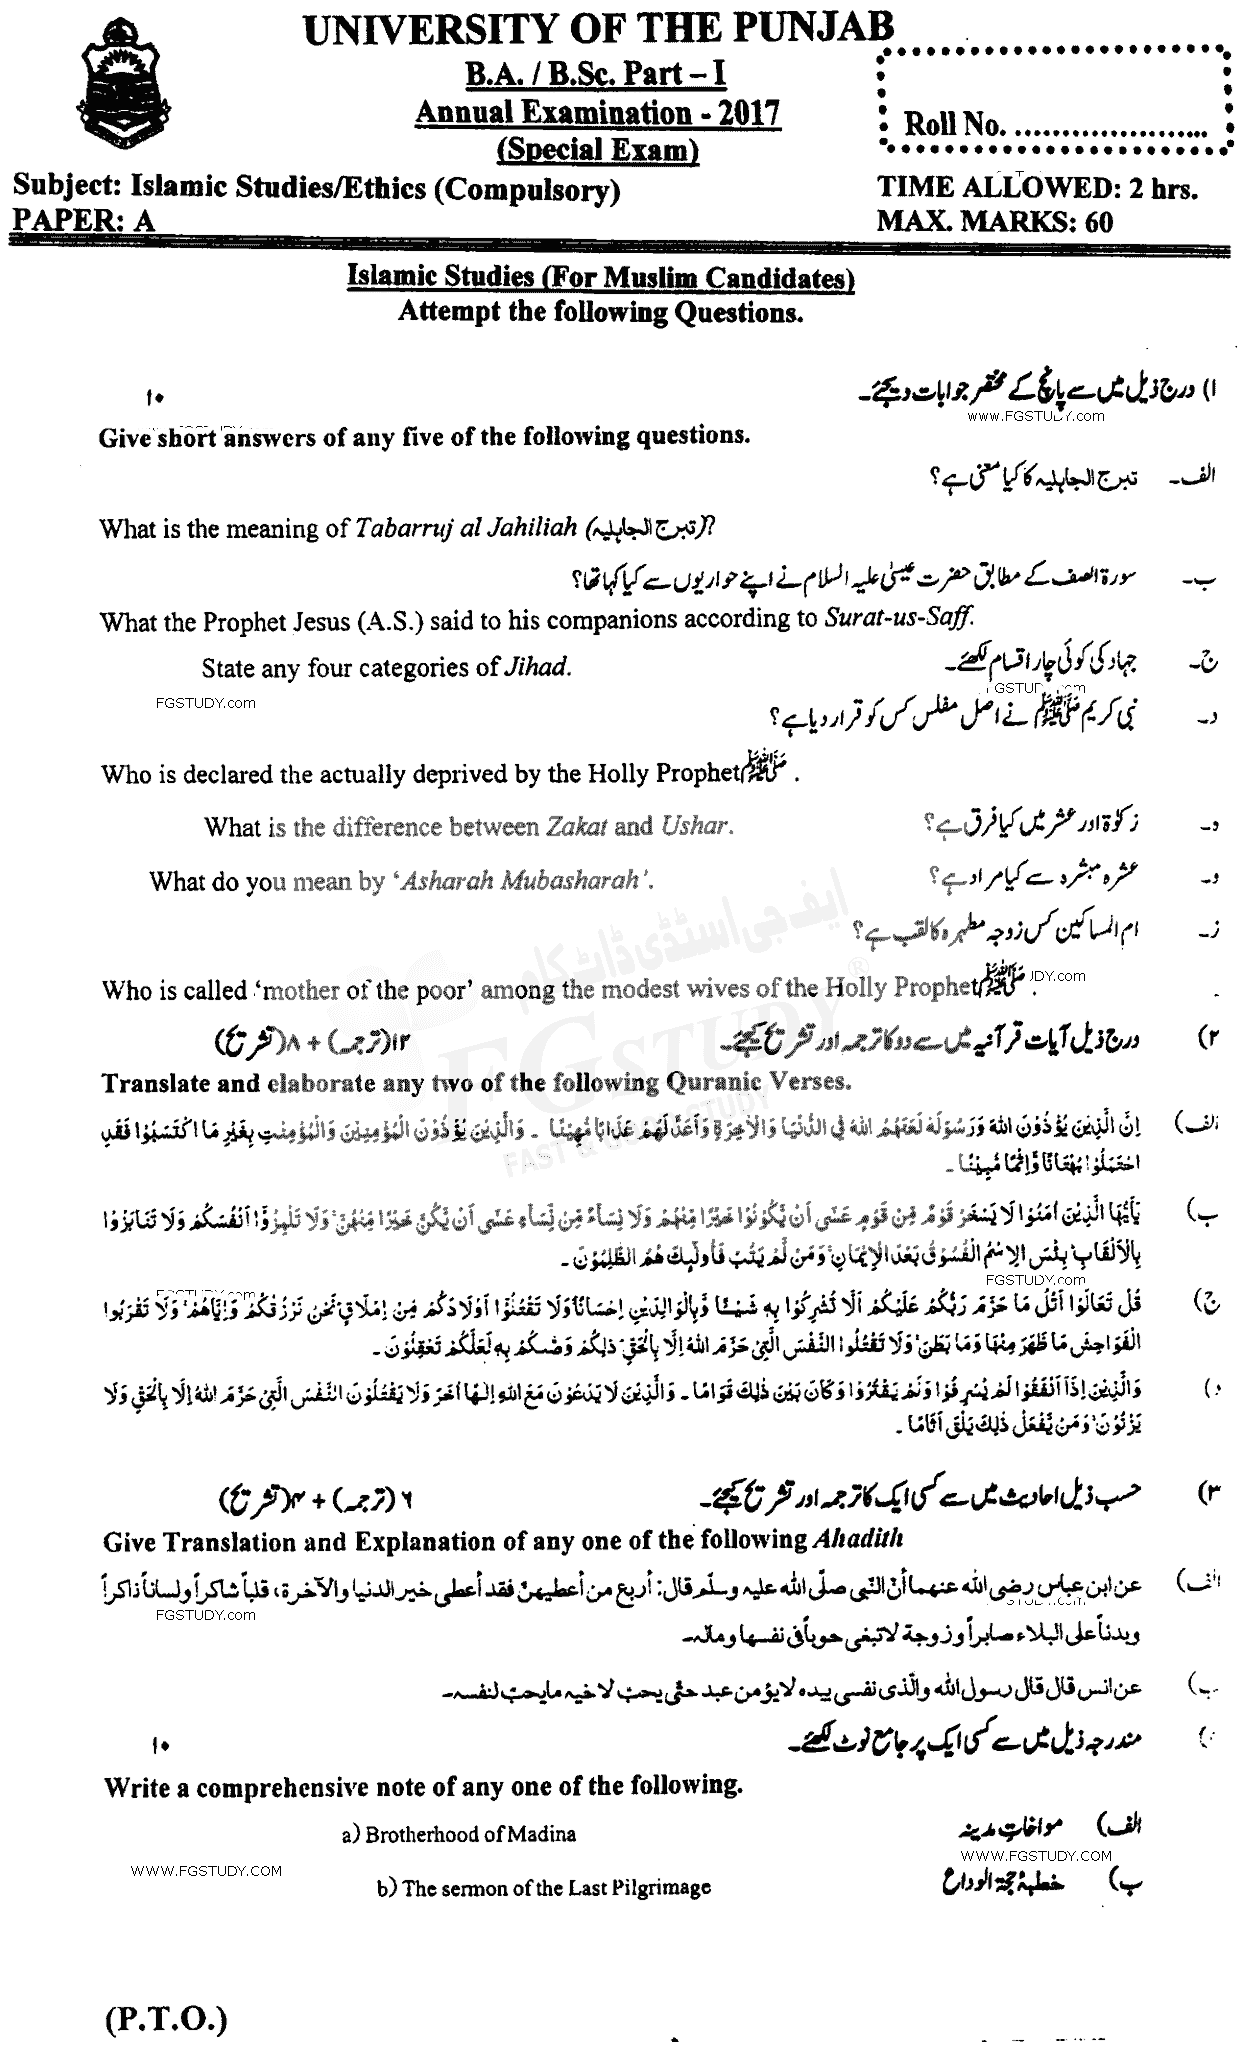 UNIVERSITY OF THE PUNJAB
B.A. / B.Sc. Part – I
Annual Examination - 2017
(Special Exam)
Roll No. .....................
Subject: Islamic Studies/Ethics (Compulsory)
TIME ALLOWED: 2 hrs.
PAPER: A
MAX. MARKS: 60
Islamic Studies (For Muslim Candidates)
Attempt the following Questions.
۱) درج ذیل میں سے پانچ کے مختصر جوابات دیجئے۔ ۱۰
www.FGSTUDY.com
Give short answers of any five of the following questions.
الف۔ تبرج الجاہلیہ کا کیا معنی ہے؟
What is the meaning of Tabarruj al Jahiliah (تبرج الجاہلیہ)?
ب۔ سورۃ الصف کے مطابق حضرت عیسیٰ علیہ السلام نے اپنے حواریوں سے کیا کہا تھا؟
What the Prophet Jesus (A.S.) said to his companions according to Surat-us-Saff.
ج۔ جہاد کی کوئی چار اقسام لکھئے۔
State any four categories of Jihad.
FGSTUDY.com
د۔ نبی کریم ﷺ نے اصل مفلس کس کو قرار دیا ہے؟
Who is declared the actually deprived by the Holly Prophet ﷺ .
ہ۔ زکوٰۃ اور عشر میں کیا فرق ہے؟
What is the difference between Zakat and Ushar.
و۔ عشرہ مبشرہ سے کیا مراد ہے؟
What do you mean by ‘Asharah Mubasharah’.
ز۔ ام المساکین کس زوجہ مطہرہ کا لقب ہے؟
Who is called ‘mother of the poor’ among the modest wives of the Holly Prophet ﷺ .
۲) درج ذیل آیات قرآنیہ میں سے دو کا ترجمہ اور تشریح کیجئے۔ ۱۲(ترجمہ) + ۸(تشریح)
Translate and elaborate any two of the following Quranic Verses.
الف) اِنَّ الَّذِیْنَ یُؤْذُوْنَ اللّٰهَ وَرَسُوْلَهٗ لَعَنَهُمُ اللّٰهُ فِی الدُّنْیَا وَالْاٰخِرَةِ وَاَعَدَّ لَهُمْ عَذَابًا مُّهِیْنًا ۔ وَالَّذِیْنَ یُؤْذُوْنَ الْمُؤْمِنِیْنَ وَالْمُؤْمِنٰتِ بِغَیْرِ مَا اكْتَسَبُوْا فَقَدِ
احْتَمَلُوْا بُهْتَانًا وَّاِثْمًا مُّبِیْنًا۔
ب) یٰۤاَیُّهَا الَّذِیْنَ اٰمَنُوْا لَا یَسْخَرْ قَوْمٌ مِّنْ قَوْمٍ عَسٰۤی اَنْ یَّكُوْنُوْا خَیْرًا مِّنْهُمْ وَلَا نِسَآءٌ مِّنْ نِّسَآءٍ عَسٰۤی اَنْ یَّكُنَّ خَیْرًا مِّنْهُنَّ ۚ وَلَا تَلْمِزُوْۤا اَنْفُسَكُمْ وَلَا تَنَابَزُوْا
بِالْاَلْقَابِ ؕ بِئْسَ الِاسْمُ الْفُسُوْقُ بَعْدَ الْاِیْمَانِ ۚ وَمَنْ لَّمْ یَتُبْ فَاُولٰٓئِكَ هُمُ الظّٰلِمُوْنَ۔
FGSTUDY.com
ج) قُلْ تَعَالَوْا اَتْلُ مَا حَرَّمَ رَبُّكُمْ عَلَیْكُمْ اَلَّا تُشْرِكُوْا بِهٖ شَیْـًٔا وَّبِالْوَالِدَیْنِ اِحْسَانًا وَلَا تَقْتُلُوْۤا اَوْلَادَكُمْ مِّنْ اِمْلَاقٍ ؕ نَحْنُ نَرْزُقُكُمْ وَاِیَّاهُمْ ۚ وَلَا تَقْرَبُوا
الْفَوَاحِشَ مَا ظَهَرَ مِنْهَا وَمَا بَطَنَ ۚ وَلَا تَقْتُلُوا النَّفْسَ الَّتِیْ حَرَّمَ اللّٰهُ اِلَّا بِالْحَقِّ ؕ ذٰلِكُمْ وَصّٰىكُمْ بِهٖ لَعَلَّكُمْ تَعْقِلُوْنَ۔
د) وَالَّذِیْنَ اِذَاۤ اَنْفَقُوْا لَمْ یُسْرِفُوْا وَلَمْ یَقْتُرُوْا وَكَانَ بَیْنَ ذٰلِكَ قَوَامًا ۔ وَالَّذِیْنَ لَا یَدْعُوْنَ مَعَ اللّٰهِ اِلٰهًا اٰخَرَ وَلَا یَقْتُلُوْنَ النَّفْسَ الَّتِیْ حَرَّمَ اللّٰهُ اِلَّا بِالْحَقِّ وَلَا
یَزْنُوْنَ ۚ وَمَنْ یَّفْعَلْ ذٰلِكَ یَلْقَ اَثَامًا ۔
۳) حسب ذیل احادیث میں سے کسی ایک کا ترجمہ اور تشریح کیجئے۔ ۶ (ترجمہ) + ۴(تشریح)
Give Translation and Explanation of any one of the following Ahadith
الف) عن ابن عباس رضی اللہ عنهما أنّ النّبی صلّی اللہ علیه وسلّم قال: أربع من أعطیهنّ فقد أعطی خیر الدنیا والآخرة، قلباً شاکراً ولساناً ذاکراً
FGSTUDY.com
وبدناً علی البلاء صابراً وزوجة لا تبغی حوباً فی نفسها وماله۔
ب) عن انس قال قال رسول اللہ والّذی نفسی بیده لا یؤمن عبد حتّٰی یحبّ لاخیه مایحبّ لنفسه۔
مندرجہ ذیل میں سے کسی ایک پر جامع نوٹ لکھئے۔ ۱۰
Write a comprehensive note of any one of the following.
الف) مواخاتِ مدینہ
a) Brotherhood of Madina
WWW.FGSTUDY.COM WWW.FGSTUDY.COM
ب) خطبۂ حجۃ الوداع
b) The sermon of the Last Pilgrimage
(P.T.O.)